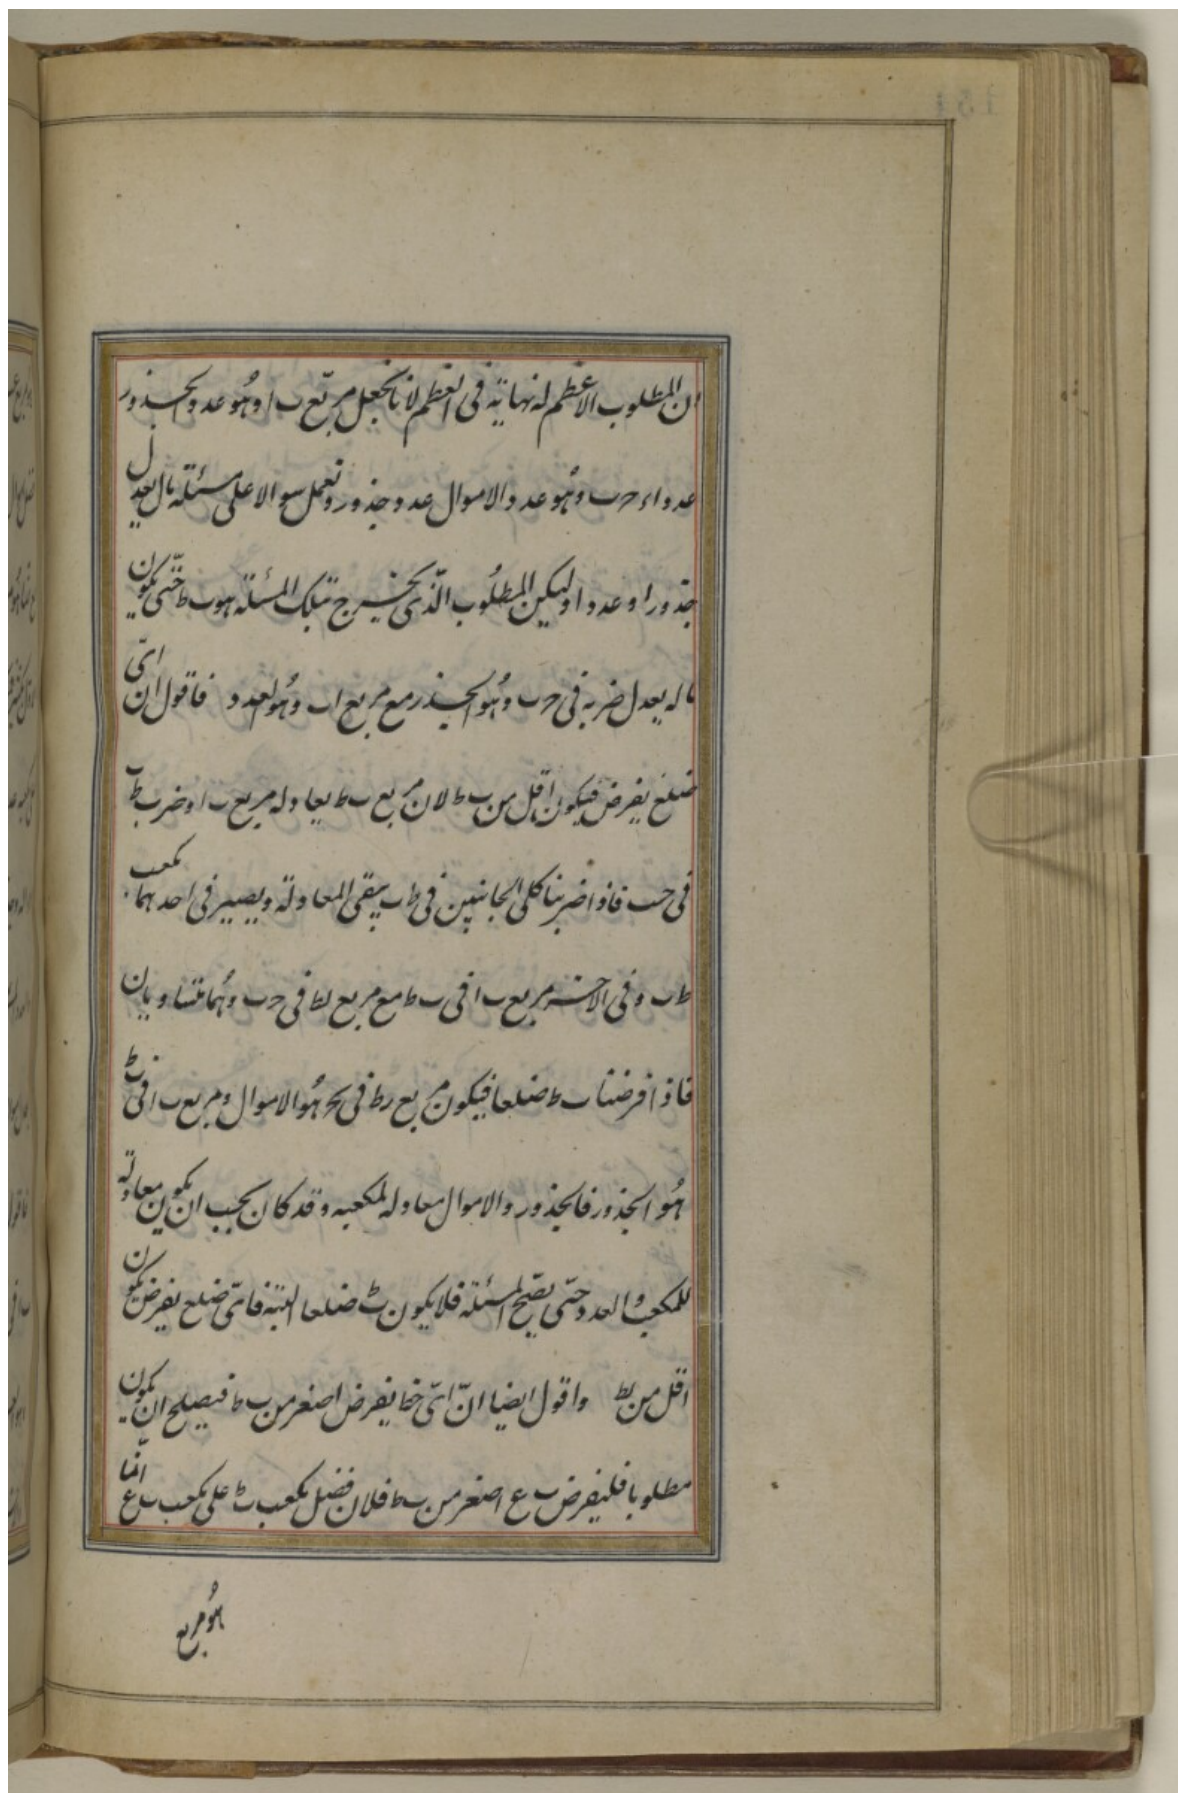 ان المطلوب الاعظم له نهاية فى العظم لانا نجعل مربّع ب ا وهُو عدد الجذور
عددا و ا ح ب وهُو عدد الاموال عدد جذور ونعمل سوالا على مسئلة مال يعدل
جذورا وعددا وليكن المطلُوب الّذى يخرج بتلك المسئلة هو ب ط حتّى يكون
ماله يعدل ضربه فى ح ب وهُو الجذر مع مربع ا ب وهُو العدد فاقول ان اىّ
ضلع يفرض فيكون اقل من ب ط لان مربع ب ط يعادله مربع ب ا وضرب ط ب
فى ح ب فاذا ضربنا كلى الجانبين فى ط ب يبقى المعادلة ويصير فى احدهما مكعب
ط ب وفى الاخر مربع ب ا فى ب ط مع مربع ب ط فى ح ب وهُما متساويان
فاذا فرضنا ب ط ضلعا فيكون مربع ب ط فى ب ح هُو الاموال ومربع ب ا فى ب ط
هُو الجذور فالجذور والاموال معادلة لمكعبه وقد كان يجب ان يكون معادلة
للمكعب والعدد حتّى يصّح المسئلة فلا يكون ب ط ضلعا البتة فاىّ ضلع يفرض يكون
اقل من ب ط واقول ايضا انّ اىّ خط يفرض اصغر من ب ط فيصلح ان يكون
مطلوبا فليفرض ب ع اصغر من ب ط فلان فضل مكعب ب ط على مكعب ب ع انما
هُو مربع